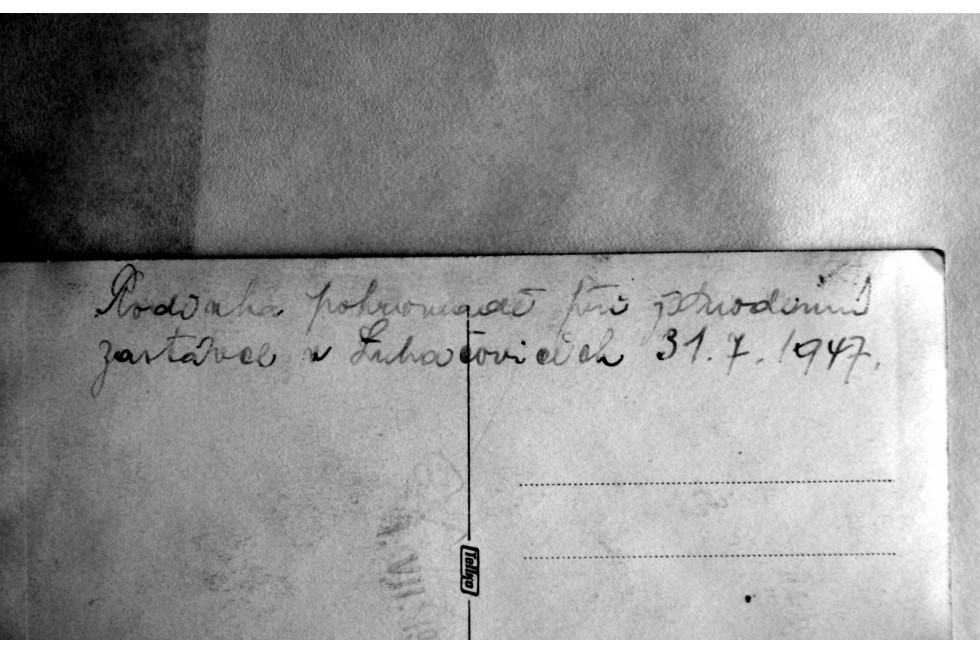 Rodinka pohromadě při jednodenní
zastávce v Luhačovicích 31.7.1947.
Tellko